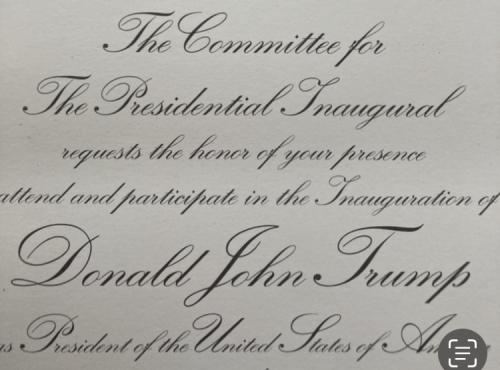 The Committee for
The Presidential Inaugural
requests the honor of your presence
attend and participate in the Inauguration of
Donald John Trump
as President of the United States of